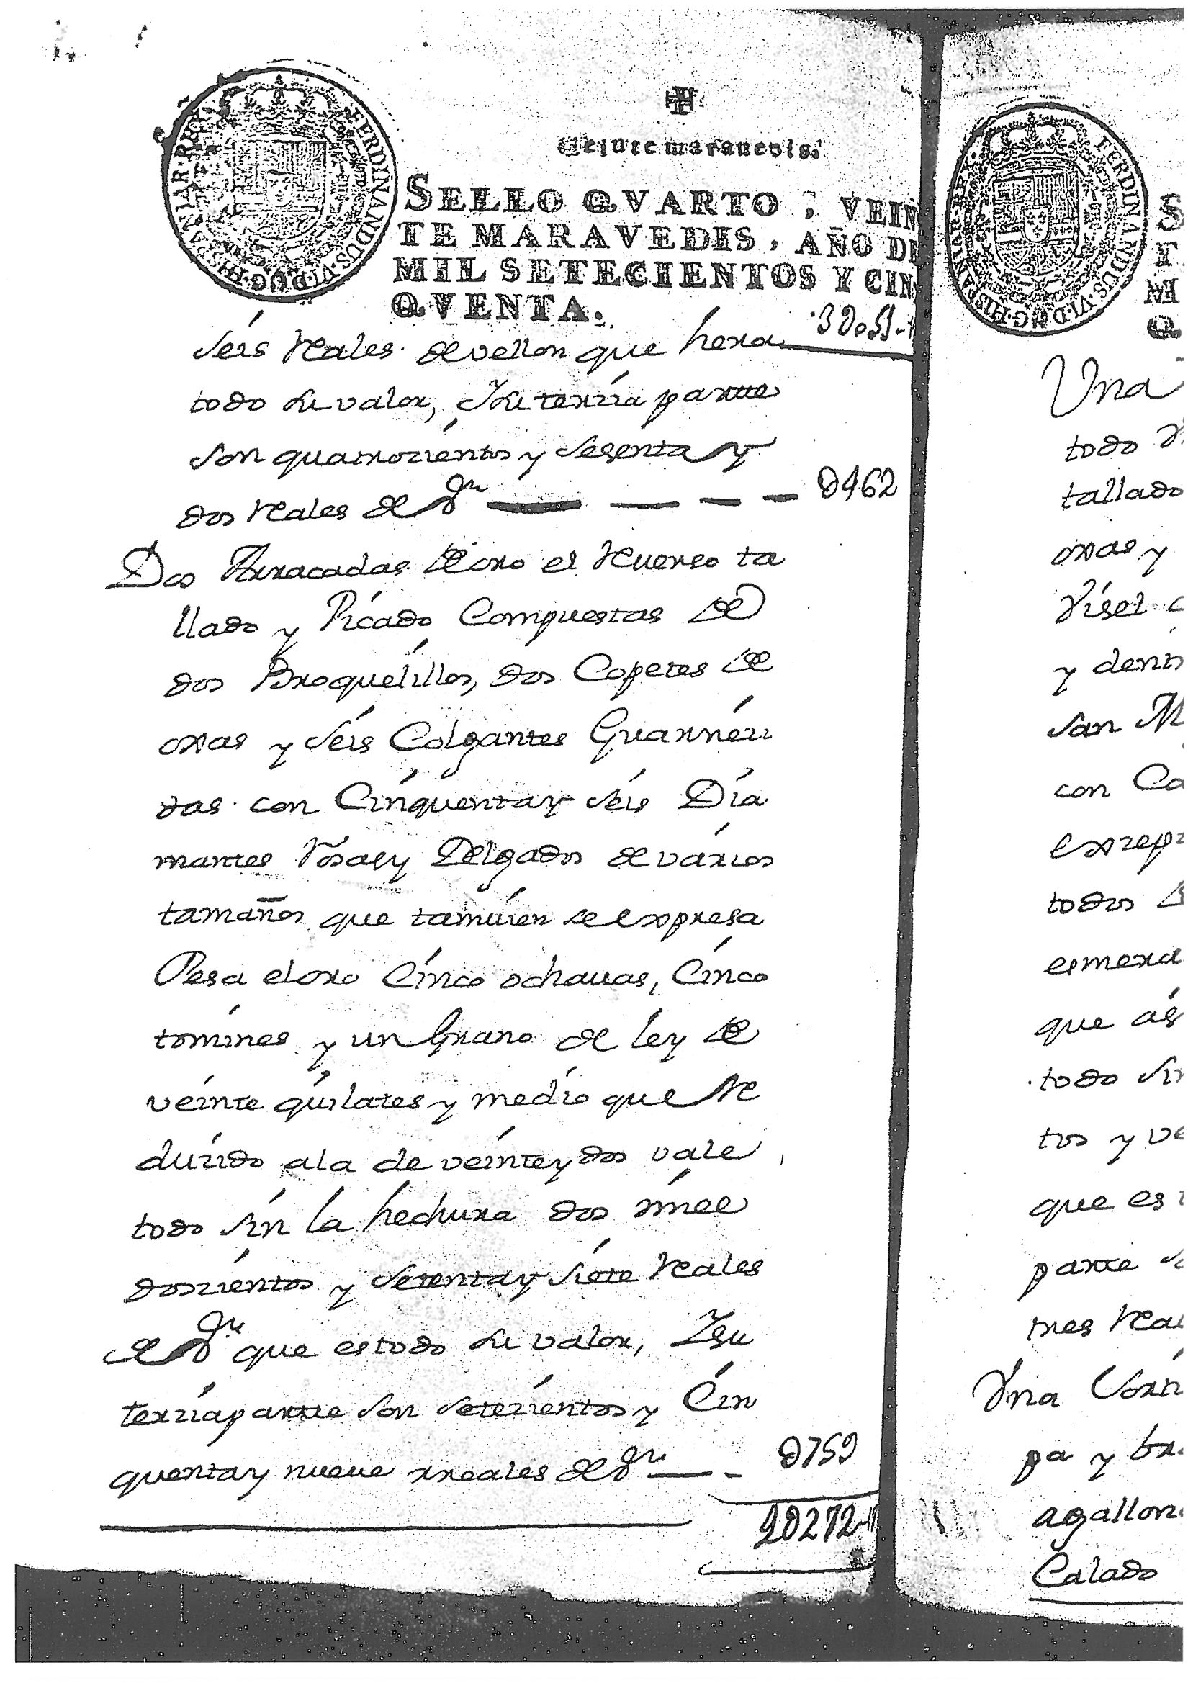 Veinte maravedis.
SELLO QVARTO, VEIN
TE MARAVEDIS, AÑO DE
MIL SETECIENTOS Y CIN
QVENTA.
FERDINANDUS·VI·D·G·HISPANIAR·REX
seis reales de vellon que hera
todo su valor, y su terzia partte
son quatrozientos y sesenta y
dos reales de vn 0462
Dos Arracadas de oro el reverso ta
llado y Picado Compuestas de
dos Broquelillos, dos Copetes de
oxas y seis Colgantes Guarnezi
das con Cinquenta y seis Dia
mantes rosas y Delgados de varios
tamaños que tamvien se expresa
Pesa el oro Cinco ochavas, Cinco
tomines y un Grano de ley de
veinte quilates y medio que re
duzido a la de veinte y dos vale
todo sin la hechura dos mill
doszientos y setenta y siete reales
de vn que es todo su valor, Y su
terzia partte son setezientos y Cin
quenta y nueve rreales de vn 0759
FERDINANDUS·VI·D·G·HISPANIAR·REX
S
T
M
Q
Una
todo
tallado
oxas y
visel
y dent
san M
con Ca
exzep
todos
esmera
que as
todo sin
tos y ve
que es
partte
tres rea
Una
pa y
agallon
Calado